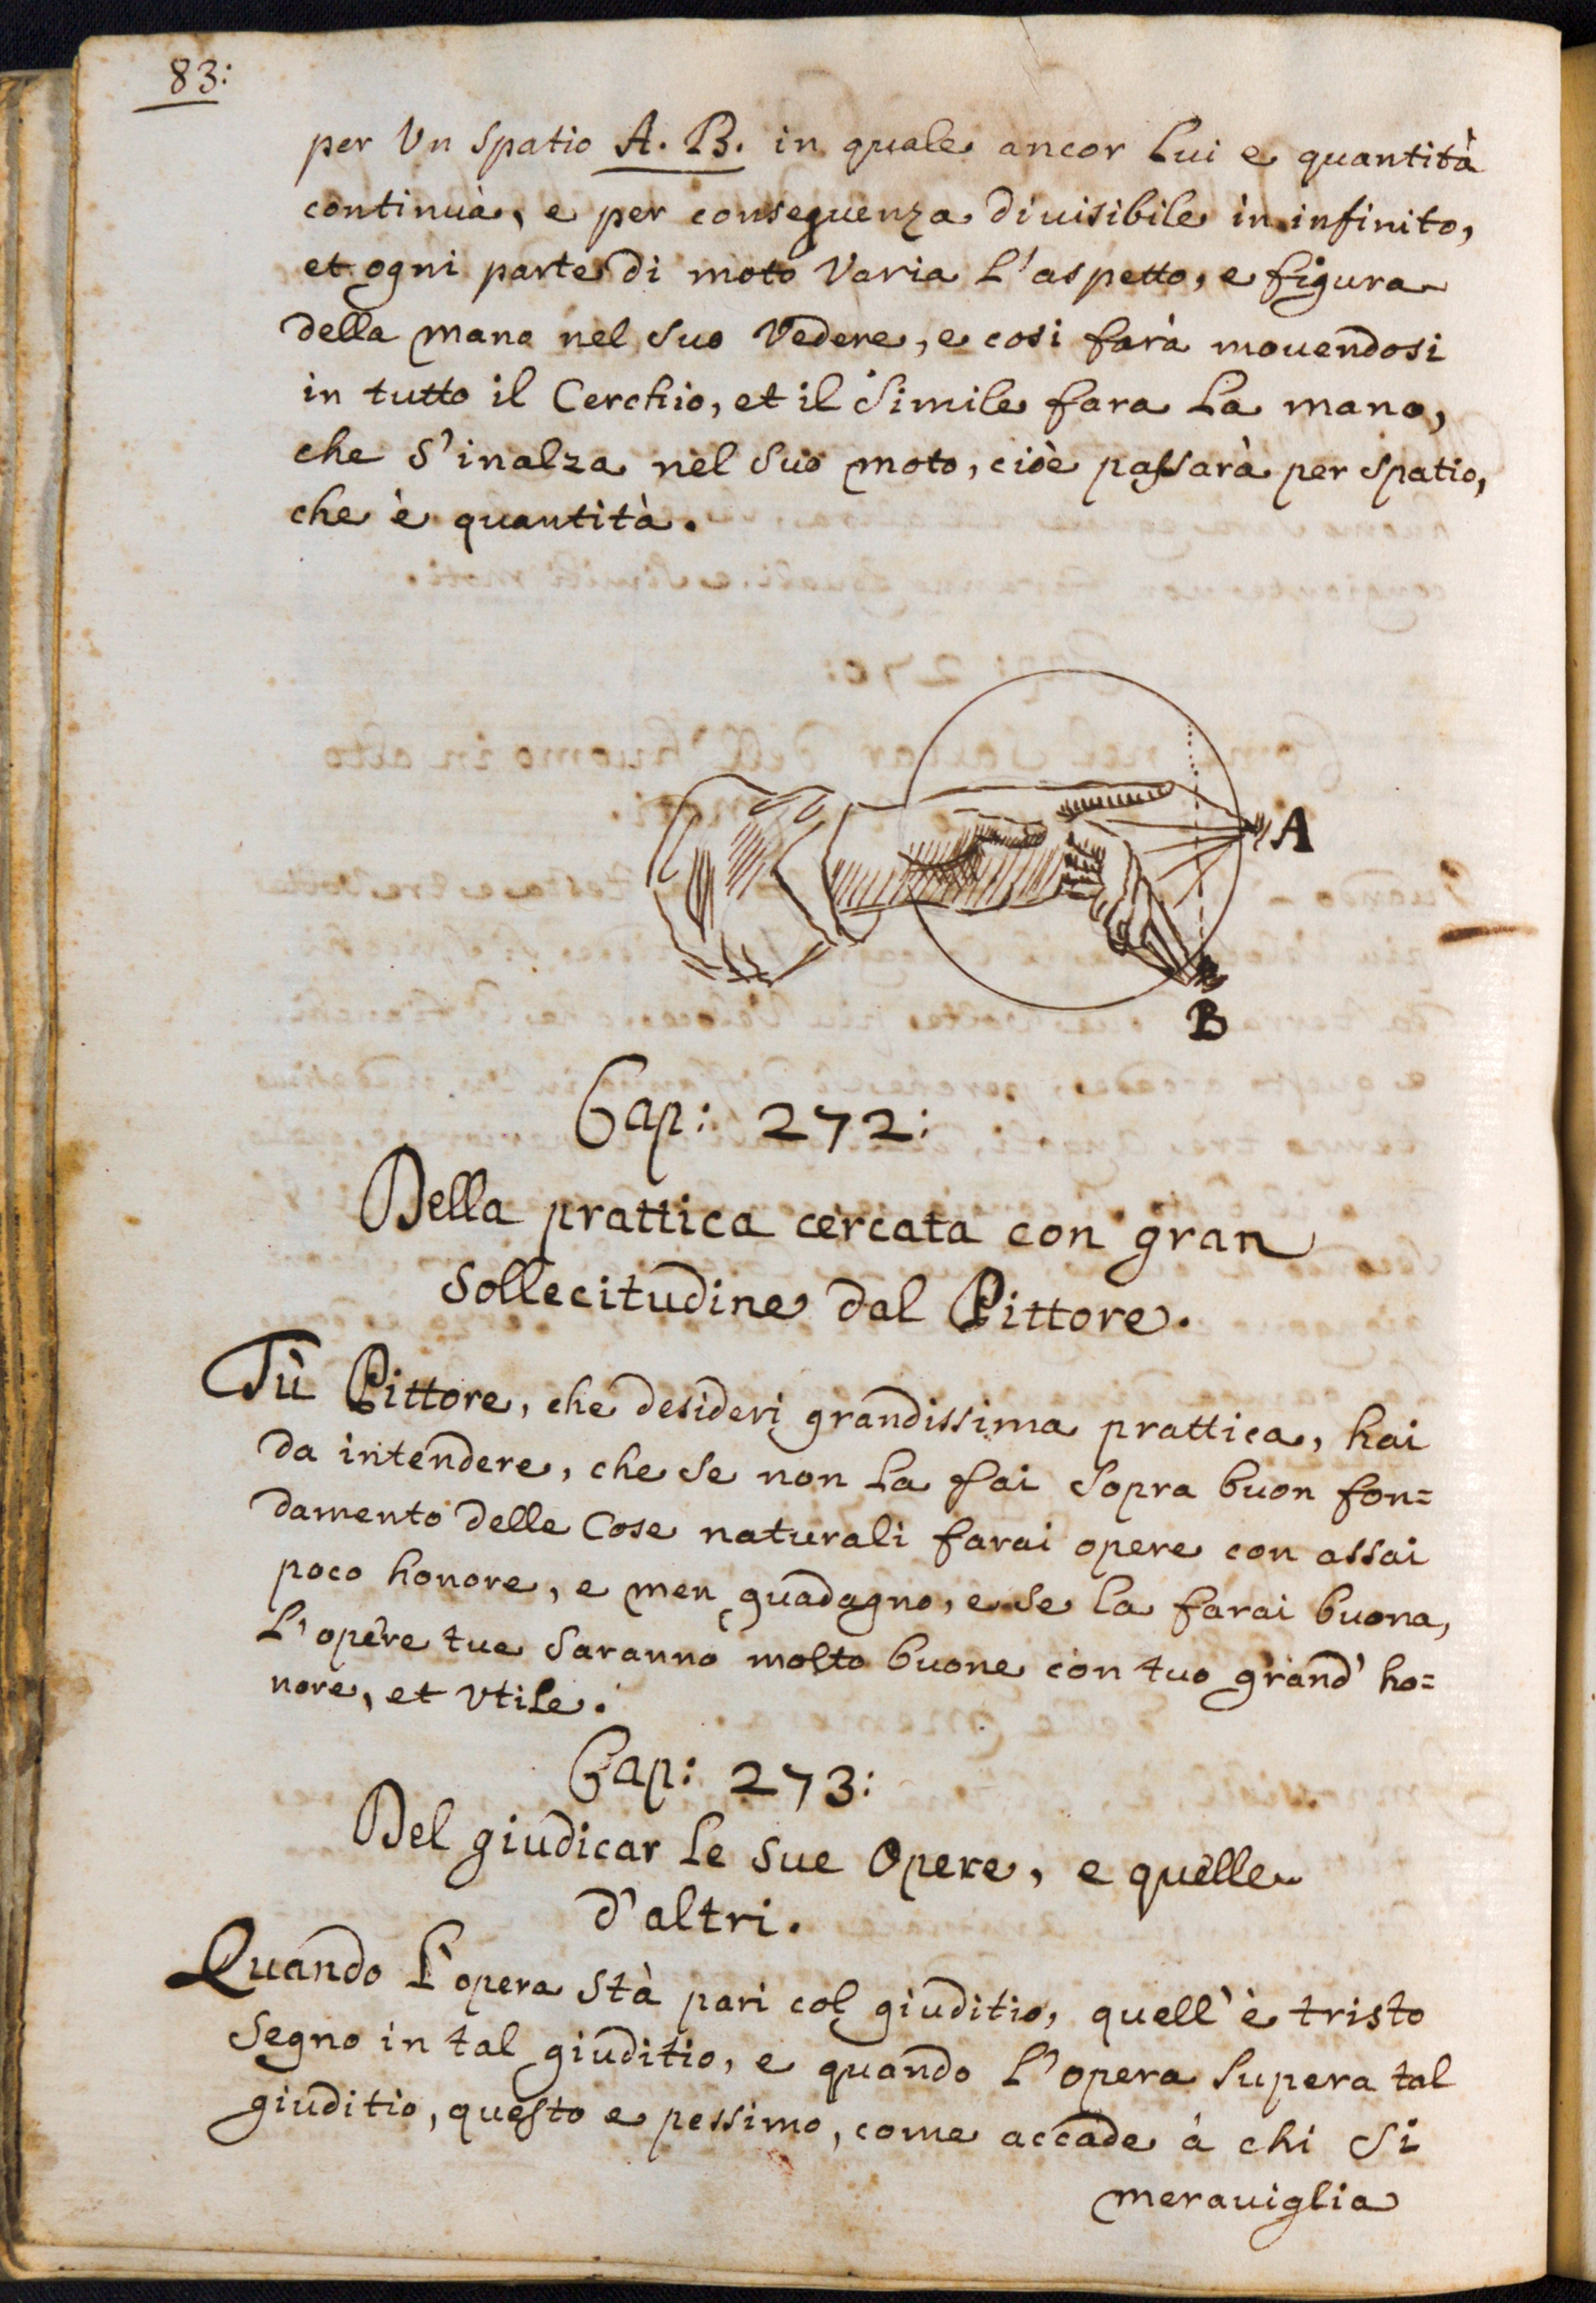 83:
per Vn Spatio A. B. in quale ancor Lui e quantità
continua, e per conseguenza diuisibile in infinito,
et ogni parte di moto Varia L'aspetto, e figura
della mano nel suo Vedere, e cosi farà mouendosi
in tutto il Cerchio, et il Simile fara La mano,
che S'inalza nel suo moto, cioè passarà per spatio,
che è quantità.
A
B
Cap: 272:
Della prattica cercata con gran
Sollecitudine dal Pittore.
Tù Pittore, che desideri grandissima prattica, hai
da intendere, che se non La fai Sopra buon fon=
damento delle Cose naturali farai opere con assai
poco honore, e men guadagno, e se la farai buona,
L'opere tue Saranno molto buone con tuo grand' ho=
nore, et Vtile.
Cap: 273:
Del giudicar Le sue Opere, e quelle
d'altri.
Quando L'opera Stà pari col giuditio, quell'è tristo
Segno in tal giuditio, e quando L'opera Supera tal
giuditio, questo e pessimo, come accade à chi Si
meraviglia